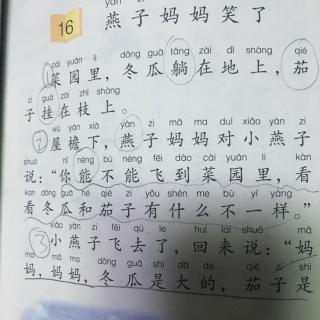 yàn zi mā ma xiào le
16 燕子妈妈笑了
cài yuán li dōng guā tǎng zài dì shàng qié
①菜园里，冬瓜躺在地上，茄
zi guà zài zhī shàng
子挂在枝上。
wū yán xià yàn zi mā ma duì xiǎo yàn zi
②屋檐下，燕子妈妈对小燕子
shuō nǐ néng bù néng fēi dào cài yuán li kàn
说：“你能不能飞到菜园里，看
kan dōng guā hé qié zi yǒu shén me bù yí yàng
看冬瓜和茄子有什么不一样。”
xiǎo yàn zi fēi qù le huí lái shuō mā
③小燕子飞去了，回来说：“妈
ma mā ma dōng guā shì dà de qié zi shì
妈，妈妈，冬瓜是大的，茄子是